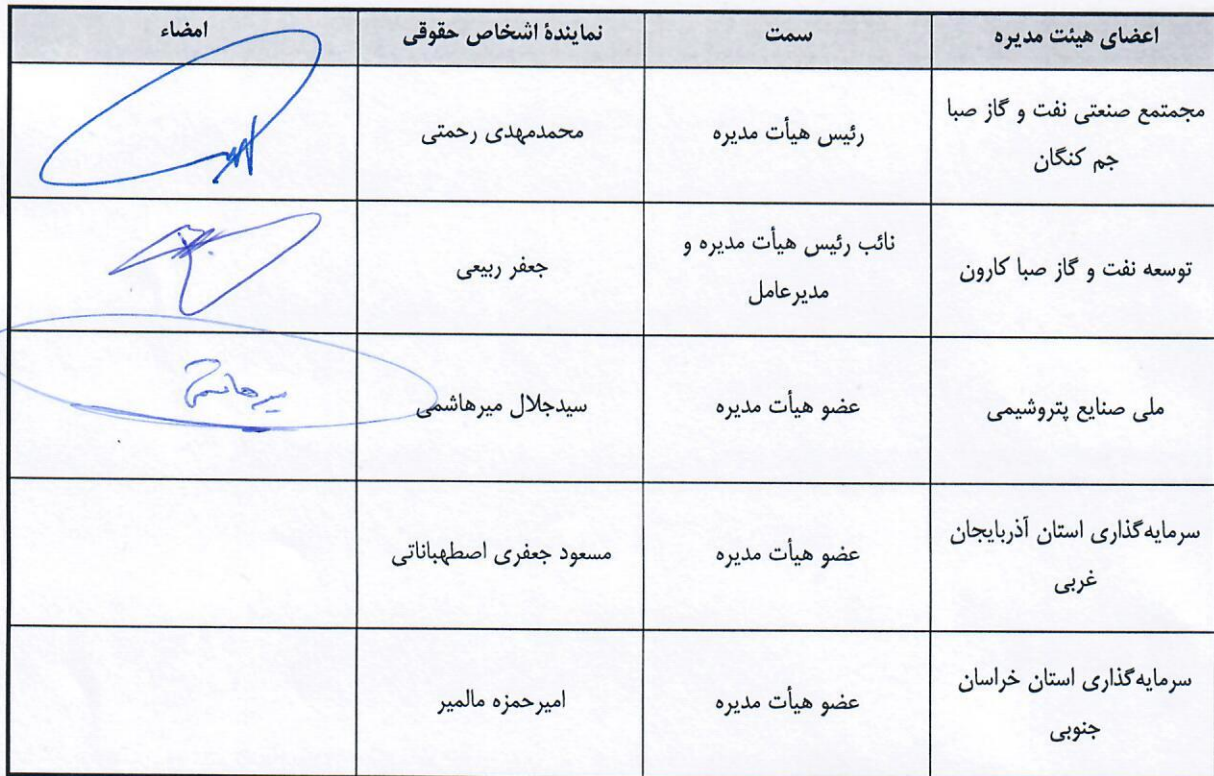 اعضای هیئت مدیره	سمت	نمایندۀ اشخاص حقوقی	امضاء
مجمتمع صنعتی نفت و گاز صبا
جم کنگان
رئیس هیأت مدیره
محمدمهدی رحمتی
توسعه نفت و گاز صبا کارون
نائب رئیس هیأت مدیره و
مدیرعامل
جعفر ربیعی
ملی صنایع پتروشیمی
عضو هیأت مدیره
سیدجلال میرهاشمی
سرمایه‌گذاری استان آذربایجان
غربی
عضو هیأت مدیره
مسعود جعفری اصطهباناتی
سرمایه‌گذاری استان خراسان
جنوبی
عضو هیأت مدیره
امیرحمزه مالمیر